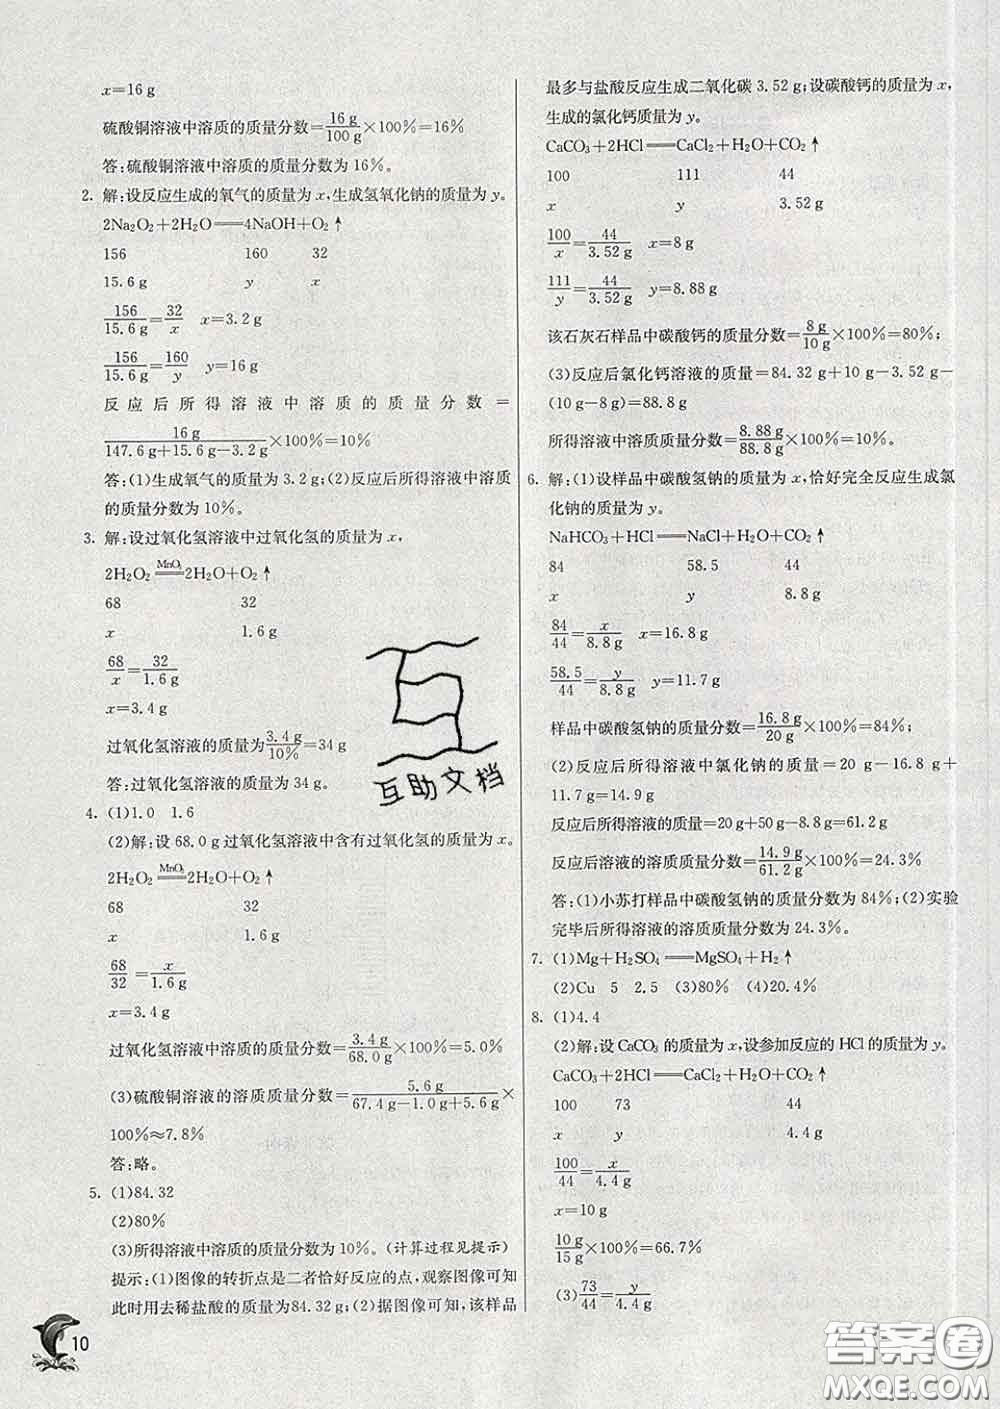 x=16 g
硫酸铜溶液中溶质的质量分数=16 g/100 g×100%=16%
答:硫酸铜溶液中溶质的质量分数为16%。
2. 解:设反应生成的氧气的质量为 x,生成氢氧化钠的质量为 y。
2Na₂O₂+2H₂O══4NaOH+O₂↑
156 160 32
15.6 g y x
156/15.6 g=32/x x=3.2 g
156/15.6 g=160/y y=16 g
反应后所得溶液中溶质的质量分数=
16 g/(147.6 g+15.6 g-3.2 g)×100%=10%
答:(1)生成氧气的质量为3.2 g;(2)反应后所得溶液中溶质
的质量分数为10%。
3. 解:设过氧化氢溶液中过氧化氢的质量为 x,
2H₂O₂ ══MnO₂══ 2H₂O+O₂↑
68 32
x 1.6 g
68/x=32/1.6 g
x=3.4 g
过氧化氢溶液的质量为3.4 g/10%=34 g
答:过氧化氢溶液的质量为34 g。
4. (1)1.0 1.6
(2)解:设68.0 g过氧化氢溶液中含有过氧化氢的质量为 x。
2H₂O₂ ══MnO₂══ 2H₂O+O₂↑
68 32
x 1.6 g
68/32=x/1.6 g
x=3.4 g
过氧化氢溶液中溶质的质量分数=3.4 g/68.0 g×100%=5.0%
(3)硫酸铜溶液的溶质质量分数=5.6 g/(67.4 g-1.0 g+5.6 g)×
100%≈7.8%
答:略。
5. (1)84.32
(2)80%
(3)所得溶液中溶质的质量分数为10%。(计算过程见提示)
提示:(1)图像的转折点是二者恰好反应的点,观察图像可知
此时用去稀盐酸的质量为84.32 g;(2)据图像可知,该样品
10
最多与盐酸反应生成二氧化碳3.52 g;设碳酸钙的质量为 x,
生成的氯化钙质量为 y。
CaCO₃+2HCl══CaCl₂+H₂O+CO₂↑
100 111 44
x y 3.52 g
100/x=44/3.52 g x=8 g
111/y=44/3.52 g y=8.88 g
该石灰石样品中碳酸钙的质量分数=8 g/10 g×100%=80%;
(3)反应后氯化钙溶液的质量=84.32 g+10 g-3.52 g-
(10 g-8 g)=88.8 g
所得溶液中溶质质量分数=8.88 g/88.8 g×100%=10%。
6. 解:(1)设样品中碳酸氢钠的质量为 x,恰好完全反应生成氯
化钠的质量为 y。
NaHCO₃+HCl══NaCl+H₂O+CO₂↑
84 58.5 44
x y 8.8 g
84/44=x/8.8 g x=16.8 g
58.5/44=y/8.8 g y=11.7 g
样品中碳酸氢钠的质量分数=16.8 g/20 g×100%=84%;
(2)反应后所得溶液中氯化钠的质量=20 g-16.8 g+
11.7 g=14.9 g
反应后所得溶液的质量=20 g+50 g-8.8 g=61.2 g
反应后溶液的溶质质量分数=14.9 g/61.2 g×100%=24.3%
答:(1)小苏打样品中碳酸氢钠的质量分数为84%;(2)实验
完毕后所得溶液的溶质质量分数为24.3%。
7. (1)Mg+H₂SO₄══MgSO₄+H₂↑
(2)Cu 5 2.5 (3)80% (4)20.4%
8. (1)4.4
(2)解:设CaCO₃的质量为 x,设参加反应的HCl的质量为 y。
CaCO₃+2HCl══CaCl₂+H₂O+CO₂↑
100 73 44
x y 4.4 g
100/44=x/4.4 g
x=10 g
10 g/15 g×100%=66.7%
(3)73/44=y/4.4 g
互助文档
答案圈
MXQE.COM